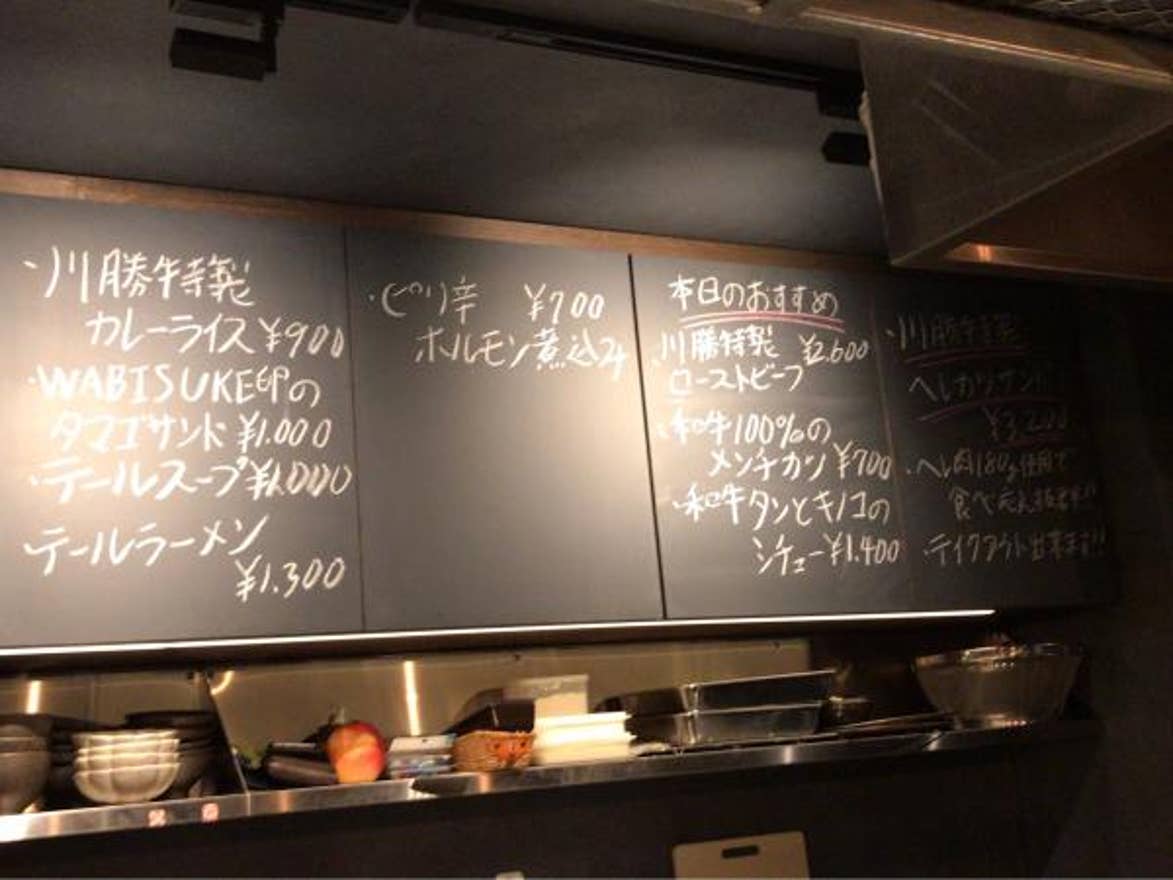 ・川勝牛特製
カレーライス ¥900
・WABISUKE印の
タマゴサンド ¥1.000
・テールスープ ¥1.000
・テールラーメン
¥1.300
・ピリ辛 ¥700
ホルモン煮込み
本日のおすすめ
・川勝牛特製 ¥2.600
ローストビーフ
・和牛100%の
メンチカツ ¥700
・和牛タンとキノコの
シチュー ¥1.400
・川勝牛特製
ヘレカツサンド
¥3,200
・ヘレ肉180g使用で
食べ応え
・テイクアウト出来ます!!